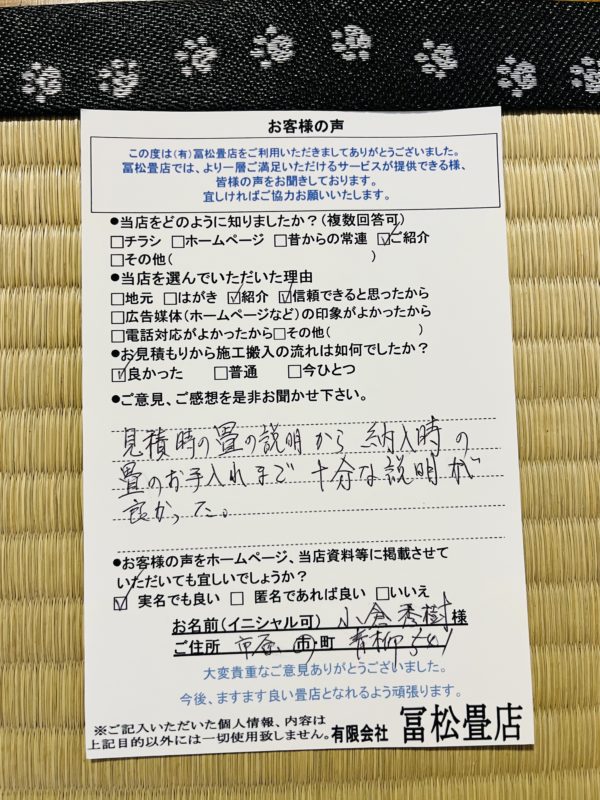 お客様の声
この度は(有)冨松畳店をご利用いただきましてありがとうございました。
冨松畳店では、より一層ご満足いただけるサービスが提供できる様、
皆様の声をお聞きしております。
宜しければご協力お願いいたします。
●当店をどのように知りましたか?(複数回答可)
□チラシ □ホームページ □昔からの常連 ☑ご紹介
□その他( )
●当店を選んでいただいた理由
□地元 □はがき ☑紹介 ☑信頼できると思ったから
□広告媒体(ホームページなど)の印象がよかったから
□電話対応がよかったから□その他( )
●お見積もりから施工搬入の流れは如何でしたか?
☑良かった □普通 □今ひとつ
●ご意見、ご感想を是非お聞かせ下さい。
見積時の畳の説明から 納入時の
畳のお手入れまで 十分な説明が
良かった。
●お客様の声をホームページ、当店資料等に掲載させて
いただいても宜しいでしょうか?
☑ 実名でも良い □ 匿名であれば良い □いいえ
お名前(イニシャル可) 小倉秀樹様
ご住所 市原 市・町 青柳
大変貴重なご意見ありがとうございました。
今後、ますます良い畳店となれるよう頑張ります。
※ご記入いただいた個人情報、内容は
上記目的以外には一切使用致しません。有限会社 冨松畳店